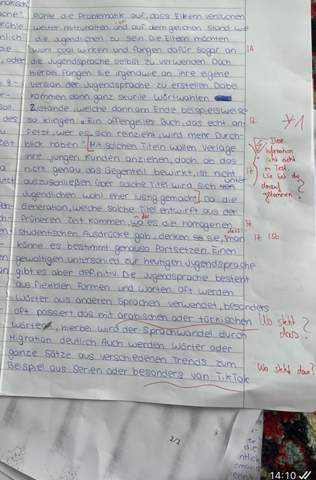 führe die Problematik auf, dass Eltern versuchen
weiter mitzuhalten und auf dem gleichen Stand wie
die Jugendlichen zu sein. Die Eltern möchten
wohl cool wirken und fangen dafür sogar an
die Jugendsprache selbst zu verwenden. Doch
hierbei fangen sie irgendwie an ihre eigene
version der Jugendsprache zu erstellen. Dabei
kommen dann ganz skurile wortwahlen
zustande, welche dann am Ende beispielsweise
so klingen: "Ein affengeiles Buch, das echt an-
feist, wer es sich reinzieht, wird mehr Durch-
blick haben". Mit solchen Titeln wollen Verlage
ihre jungen Kunden anziehen, doch ob das
nicht genau das Gegenteil bewirkt, ist nicht
auszuschließen. Über solche Titel wird sich unter
Jugendlichen wohl eher lustig gemacht. Da die
Generation, welche solche Titel entwirft aus der
früheren Zeit kommen, in der wo es die homogenen
studentischen Ausdrücke gab, denken sie, man dass
könne es bestimmt genauso fortsetzen. Einen
gewaltigen unterschied zur heutigen Jugendsprache
gibt es aber definitiv. Die Jugendsprache besteht
aus flexiblen Formen und Worten. Oft werden
Wörter aus anderen Sprachen verwendet, besonders
oft passiert das mit arabischen oder türkischen
Wörter, hierbei wird der Sprachwandel durch
Migration deutlich. Auch werden Wörter oder
ganze Sätze aus verschiedenen Trends zum
Beispiel aus Serien oder besonders von TikTok
Diese
Information
steht nicht
im Text.
Wo steht
das?
Wo steht das?
2/2
14:10